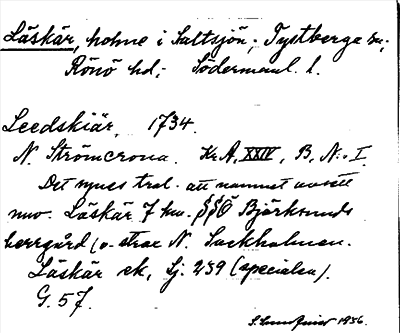 Läskär, holme i Saltsjön; Tystberga sn;
Rönö hd; Södermanl. l.
Leedskiär, 1734.
N. Strömcrona. Kr.A, XXIV, B, N:o I.
Det synes tral. att namnet avsett
nuv. Läskär 7 km. SSO Björksunds
herrgård (o. strax N. Sackholmen.
Läskär ek. Sj. 239 (specialen).
G. 57.
1936.